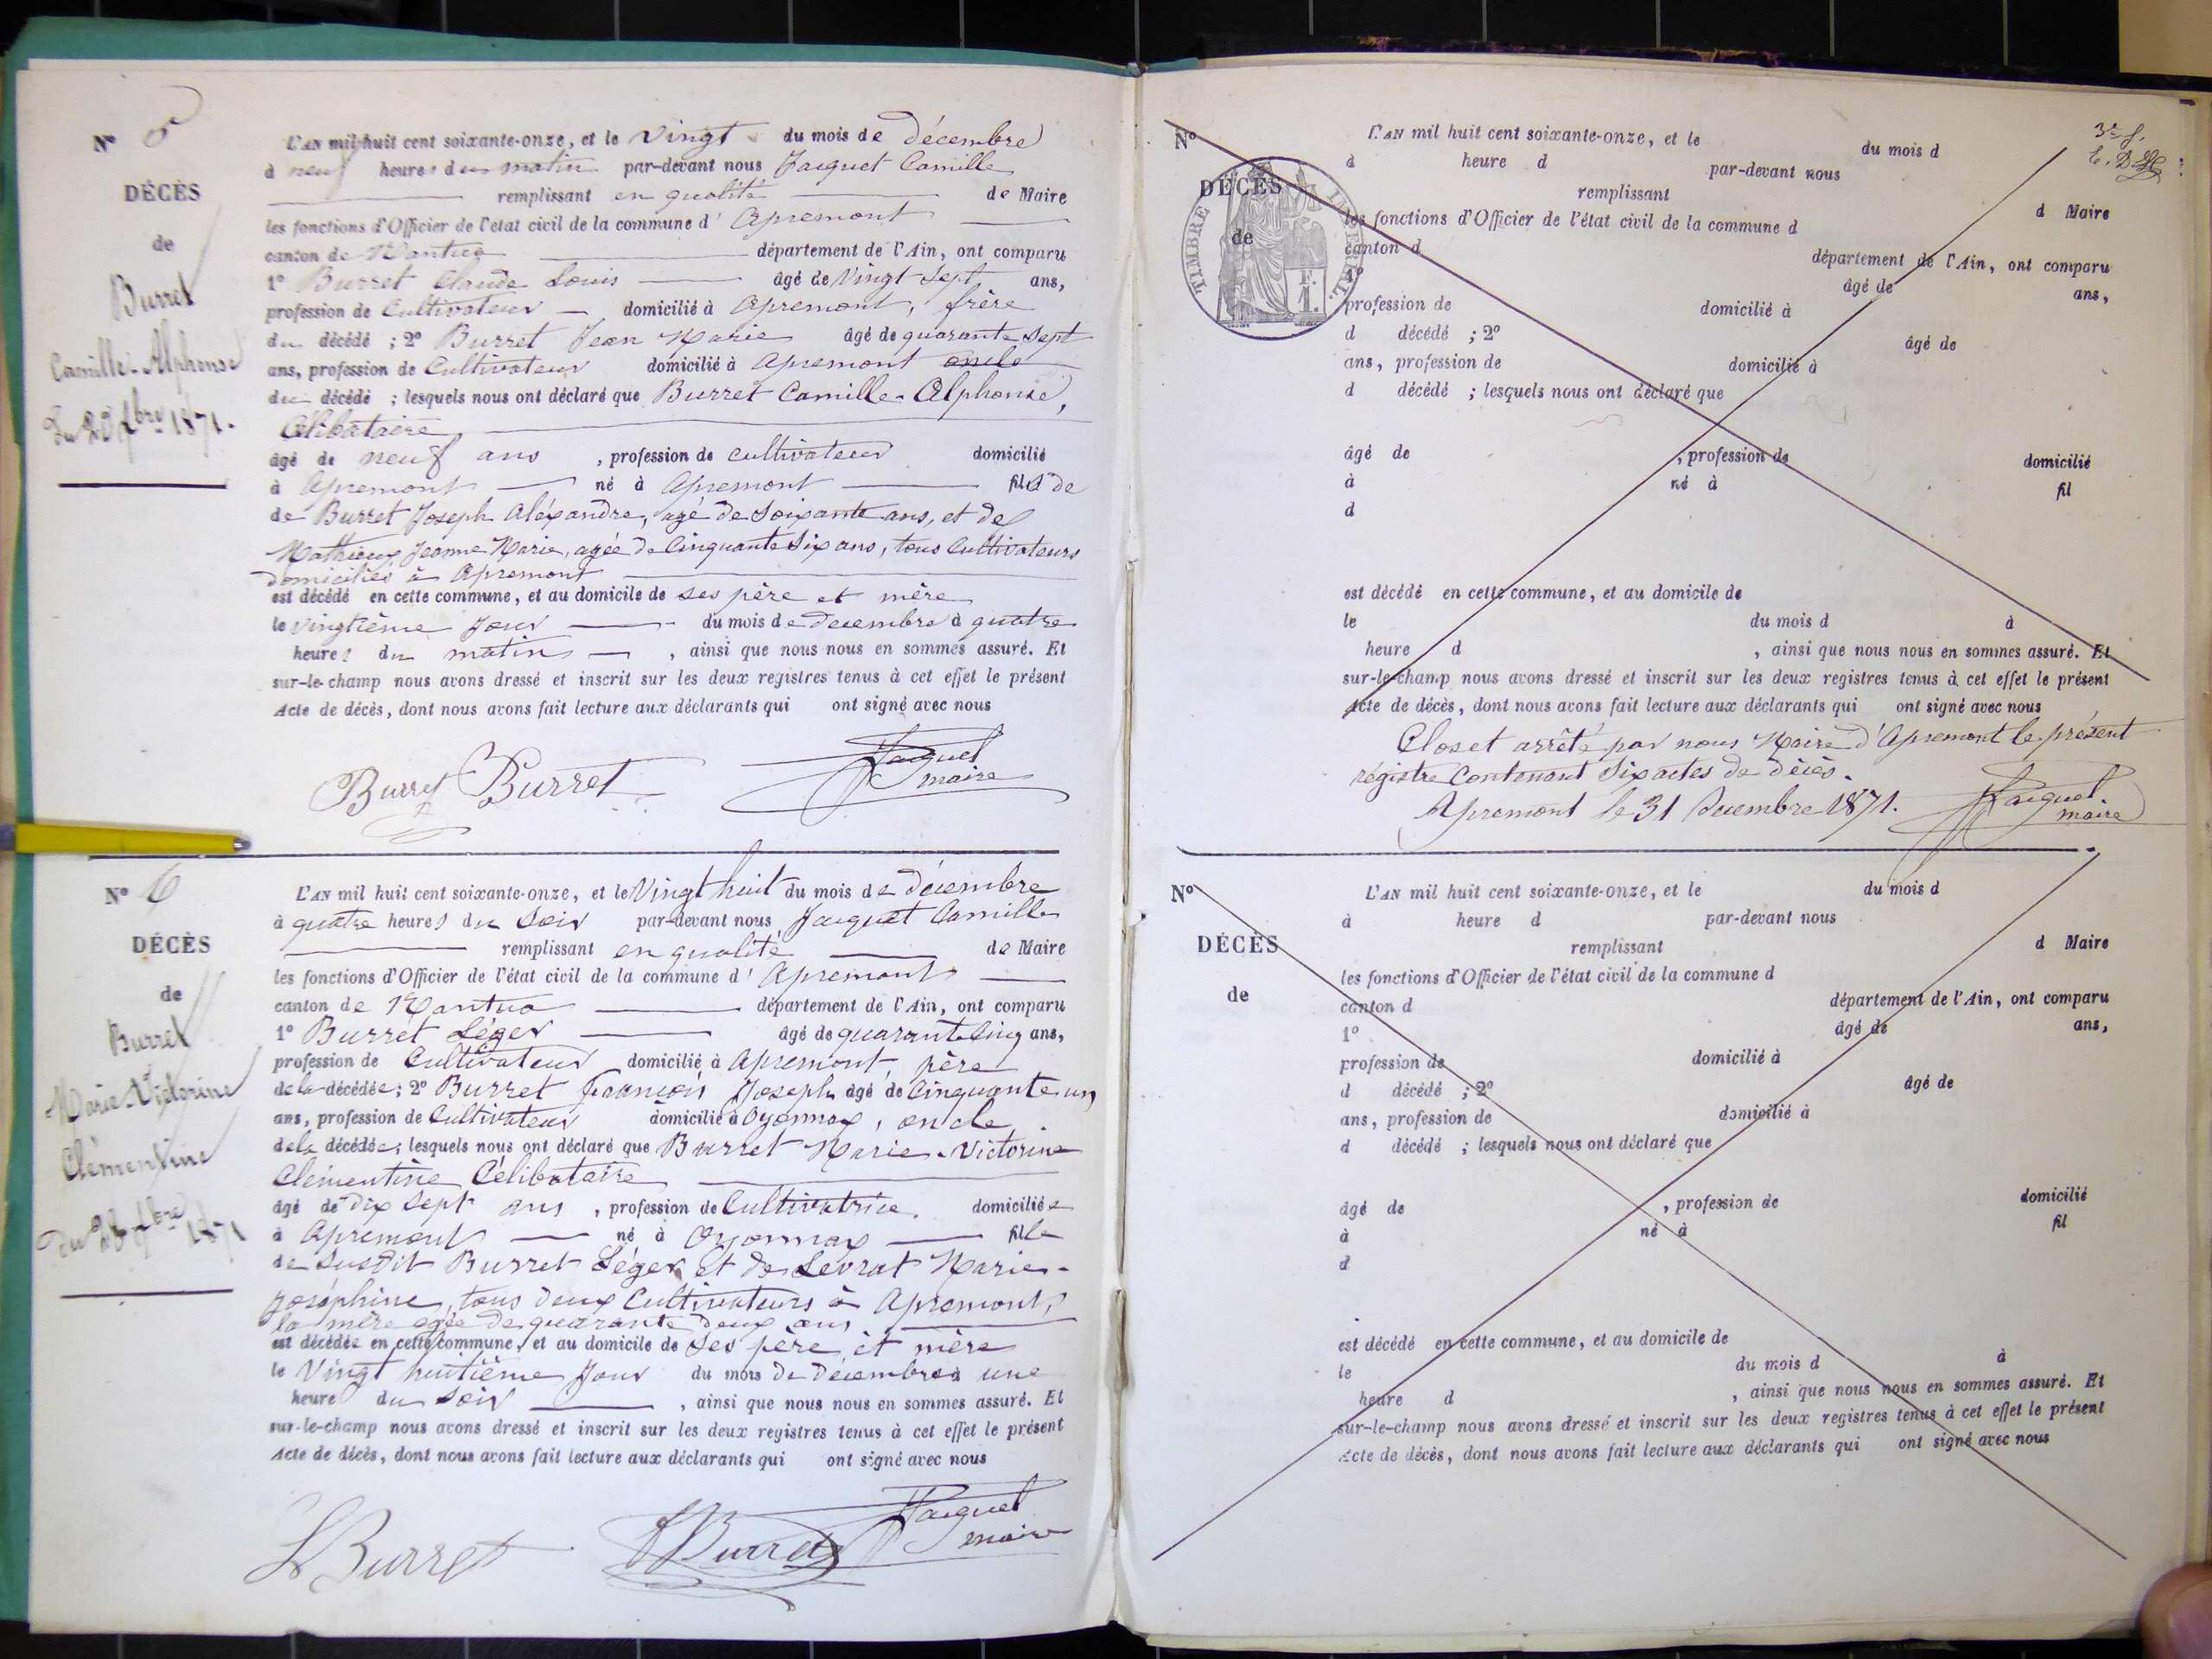 N° 5
DÉCÈS
de
Burret
Camille-Alphonse
Du 20 Xbre 1871.
L'AN mil huit cent soixante-onze, et le Vingt du mois de décembre
à neuf heures du matin par-devant nous Jacquet Camille
remplissant en qualité de Maire
les fonctions d'Officier de l'état civil de la commune d' Apremont
canton de Nantua département de l'Ain, ont comparu
1° Burret Claude Louis âgé de Vingt Sept ans,
profession de Cultivateur domicilié à Apremont, frère
du décédé ; 2° Burret Jean Marie âgé de quarante Sept
ans, profession de Cultivateur domicilié à Apremont oncle
du décédé ; lesquels nous ont déclaré que Burret Camille-Alphonse,
Célibataire,
âgé de neuf ans , profession de cultivateur domicilié
à Apremont né à Apremont fils de
de Burret Joseph Aléxandre, agé de Soixante ans, et de
Mathieux Jeanne Marie, agée de Cinquante Six ans, tous Cultivateurs
domiciliés à Apremont
est décédé en cette commune, et au domicile de ses père et mère
le vingtième Jour du mois de decembre à quatre
heures du matin , ainsi que nous nous en sommes assuré. Et
sur-le-champ nous avons dressé et inscrit sur les deux registres tenus à cet effet le présent
Acte de décès, dont nous avons fait lecture aux déclarants qui ont signé avec nous
Burret Burret Jacquet
maire
N° 6
DÉCÈS
de
Burret
Marie-Victorine
Clémentine
du 28 Xbre 1871
L'AN mil huit cent soixante-onze, et le Vingt huit du mois de décembre
à quatre heures du Soir par-devant nous Jacquet Camille
remplissant en qualité de Maire
les fonctions d'Officier de l'état civil de la commune d' Apremont
canton de Nantua département de l'Ain, ont comparu
1° Burret Léger âgé de quarante Cinq ans,
profession de Cultivateur domicilié à Apremont, père
de la décédée ; 2° Burret François Joseph âgé de Cinquante un
ans, profession de Cultivateur domicilié à Oyonnax, oncle
de la décédée ; lesquels nous ont déclaré que Burret Marie-Victorine
Clémentine Célibataire
âgé de dix Sept ans , profession de Cultivatrice. domiciliée
à Apremont né à Oyonnax fille
de Susdit Burret Léger et de Levrat Marie-
Joséphine, tous deux Cultivateurs à Apremont,
la mère agée de quarante deux ans
est décédée en cette commune, et au domicile de Ses père et mère
le Vingt huitième Jour du mois de Décembre à une
heure du Soir , ainsi que nous nous en sommes assuré. Et
sur-le-champ nous avons dressé et inscrit sur les deux registres tenus à cet effet le présent
Acte de décès, dont nous avons fait lecture aux déclarants qui ont signé avec nous
L Burret Burret Jacquet
maire
N°
DÉCÈS
de
TIMBRE IMPÉRIAL.
F.
1.
L'AN mil huit cent soixante-onze, et le du mois d
à heure d par-devant nous
remplissant d Maire
les fonctions d'Officier de l'état civil de la commune d
canton d département de l'Ain, ont comparu
1° âgé de ans,
profession de domicilié à
d décédé ; 2° âgé de
ans, profession de domicilié à
d décédé ; lesquels nous ont déclaré que
âgé de , profession de domicilié
à né à fil
d
est décédé en cette commune, et au domicile de
le du mois d à
heure d , ainsi que nous nous en sommes assuré. Et
sur-le-champ nous avons dressé et inscrit sur les deux registres tenus à cet effet le présent
Acte de décès, dont nous avons fait lecture aux déclarants qui ont signé avec nous
Clos et arrêté par nous Maire d'Apremont le présent
régistre Contenant Six actes de décès.
Apremont le 31 Decembre 1871. Jacquet
maire
N°
DÉCÈS
de
L'AN mil huit cent soixante-onze, et le du mois d
à heure d par-devant nous
remplissant d Maire
les fonctions d'Officier de l'état civil de la commune d
canton d département de l'Ain, ont comparu
1° âgé de ans,
profession de domicilié à
d décédé ; 2° âgé de
ans, profession de domicilié à
d décédé ; lesquels nous ont déclaré que
âgé de , profession de domicilié
à né à fil
d
est décédé en cette commune, et au domicile de
le du mois d à
heure d , ainsi que nous nous en sommes assuré. Et
sur-le-champ nous avons dressé et inscrit sur les deux registres tenus à cet effet le présent
Acte de décès, dont nous avons fait lecture aux déclarants qui ont signé avec nous